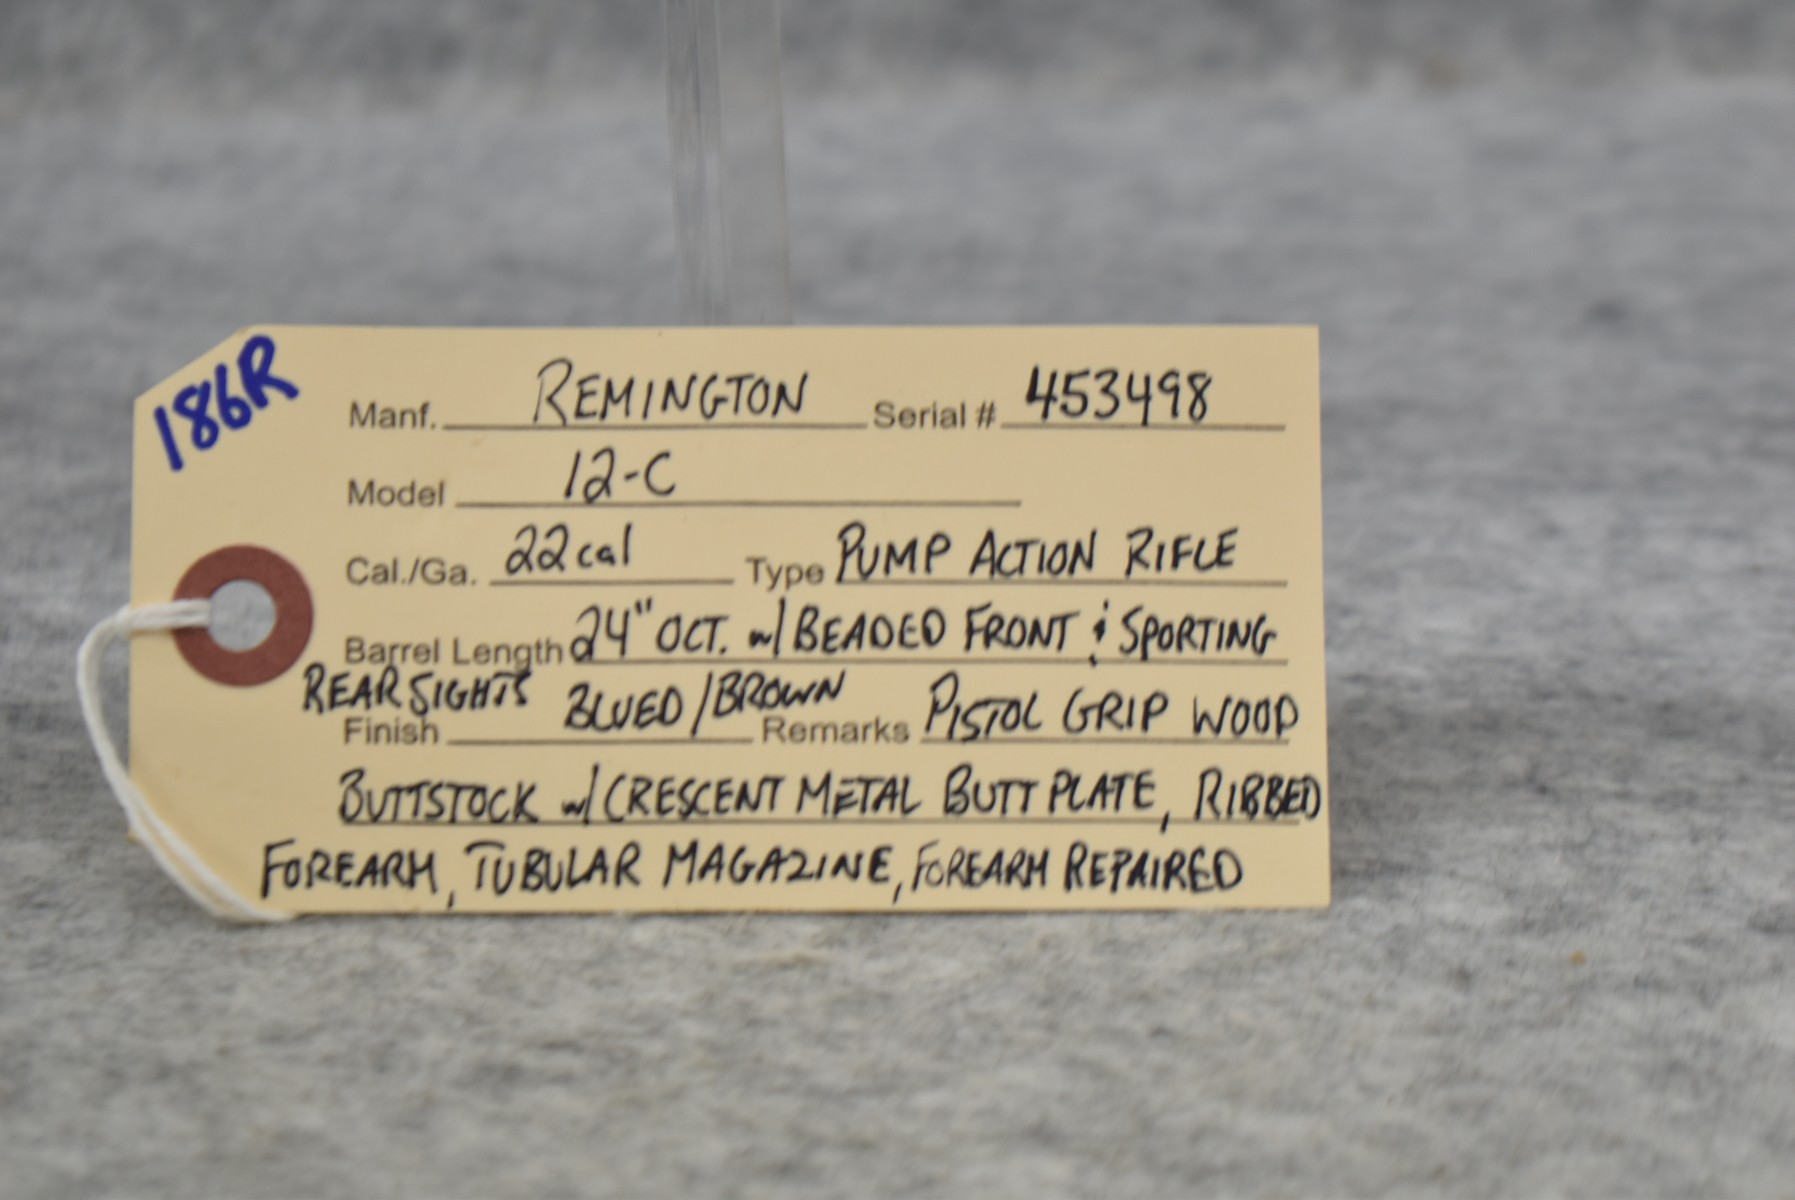 186R
Manf. REMINGTON Serial # 453498
Model 12-C
Cal./Ga. 22cal Type PUMP ACTION RIFLE
Barrel Length 24" OCT. w/ BEADED FRONT & SPORTING
REAR SIGHTS
Finish BLUED/BROWN Remarks PISTOL GRIP WOOD
BUTTSTOCK w/ CRESCENT METAL BUTT PLATE, RIBBED
FOREARM, TUBULAR MAGAZINE, FOREARM REPAIRED